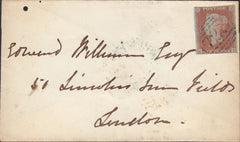 Edward William Esq
50 Lincolns Inn Fields
London.